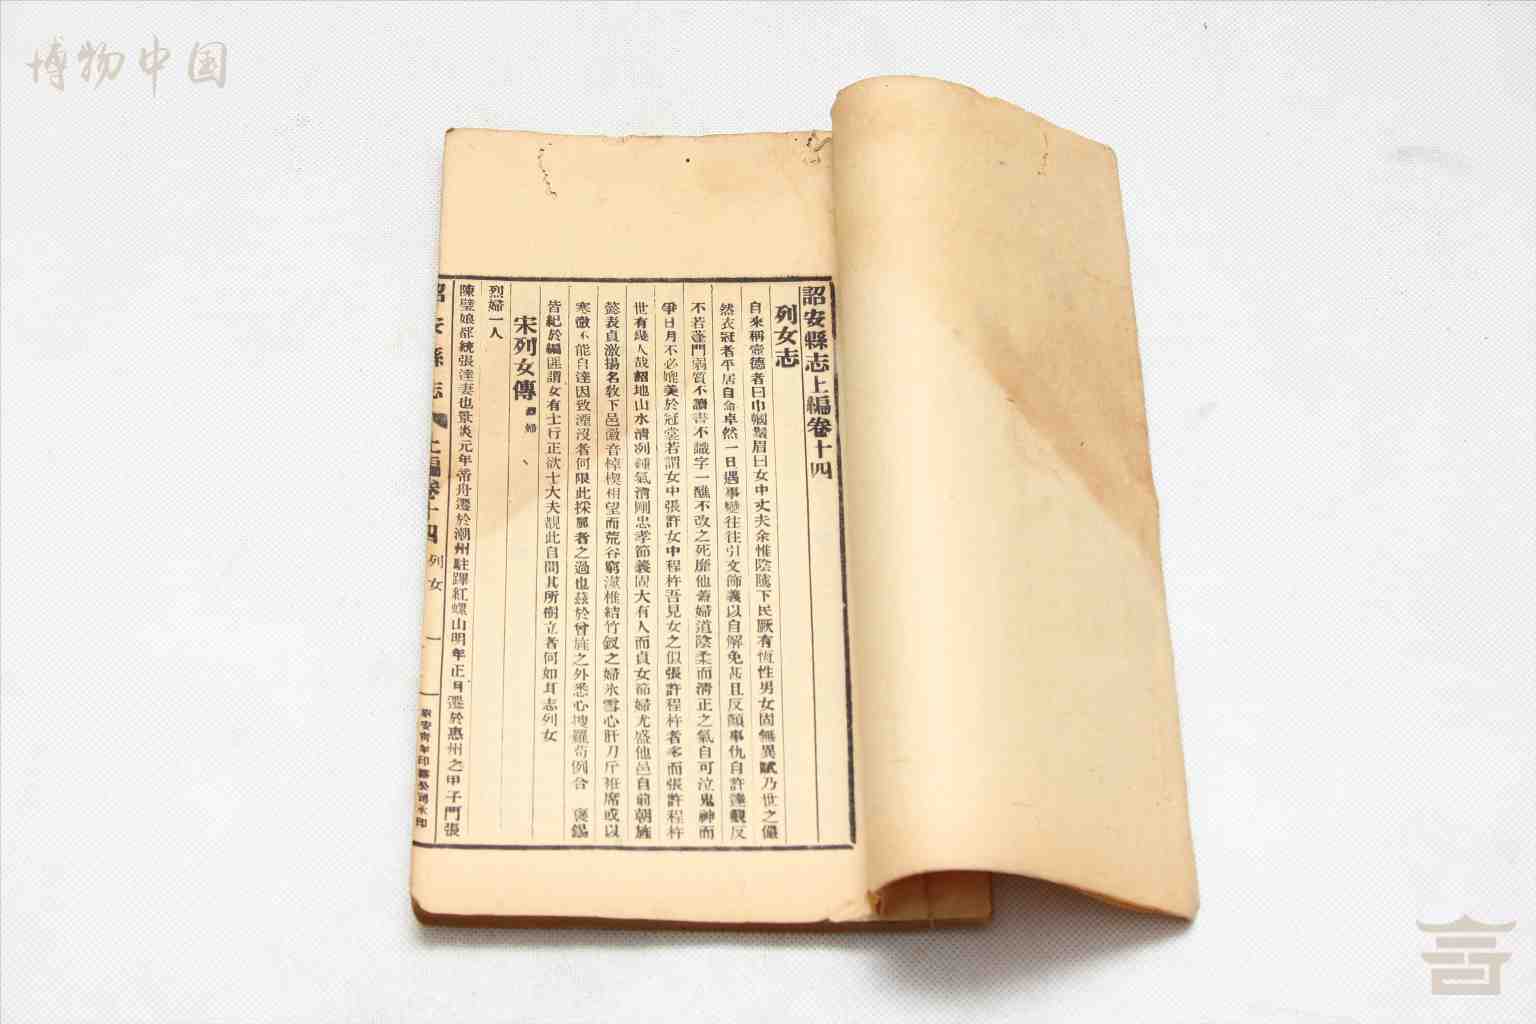 博物中国
詔安縣志上編卷十四
列女志
自來稱壼德者曰巾幗鬚眉曰女中丈夫余惟陰隲下民厥有恆性男女固無異賦乃世之儼
然衣冠者平居自命卓然一日遇事變往往引文飾義以自解免甚且反顏事仇自許達觀反
不若蓬門弱質不讀書不識字一醮不改之死靡他蓋婦道陰柔而清正之氣自可泣鬼神而
爭日月不必媲美於冠堂若謂女中張許女中程杵吾見女之似張許程杵者多而張許程杵
世有幾人哉詔地山水清冽鍾氣清剛忠孝節義固大有人而貞女節婦尤盛他邑自前朝旌
懿表貞激揚名教下邑徽音棹楔相望而荒谷窮漵椎結竹釵之婦氷雪心肝刀斤袵席或以
寒微不能自達因致湮沒者何限此採風者之過也茲於曾旌之外悉心搜羅苟例合 褒錫
皆紀於編匪謂女有士行正欲士大夫覩此自問其所樹立者何如耳志列女
宋列女傳 烈婦
烈婦一人
陳璧娘都統張達妻也景炎元年帝舟遷於潮州駐蹕紅螺山明年正月遷於惠州之甲子門張
詔安縣志 上編卷十四 列女 一 詔安青年印務公司承印